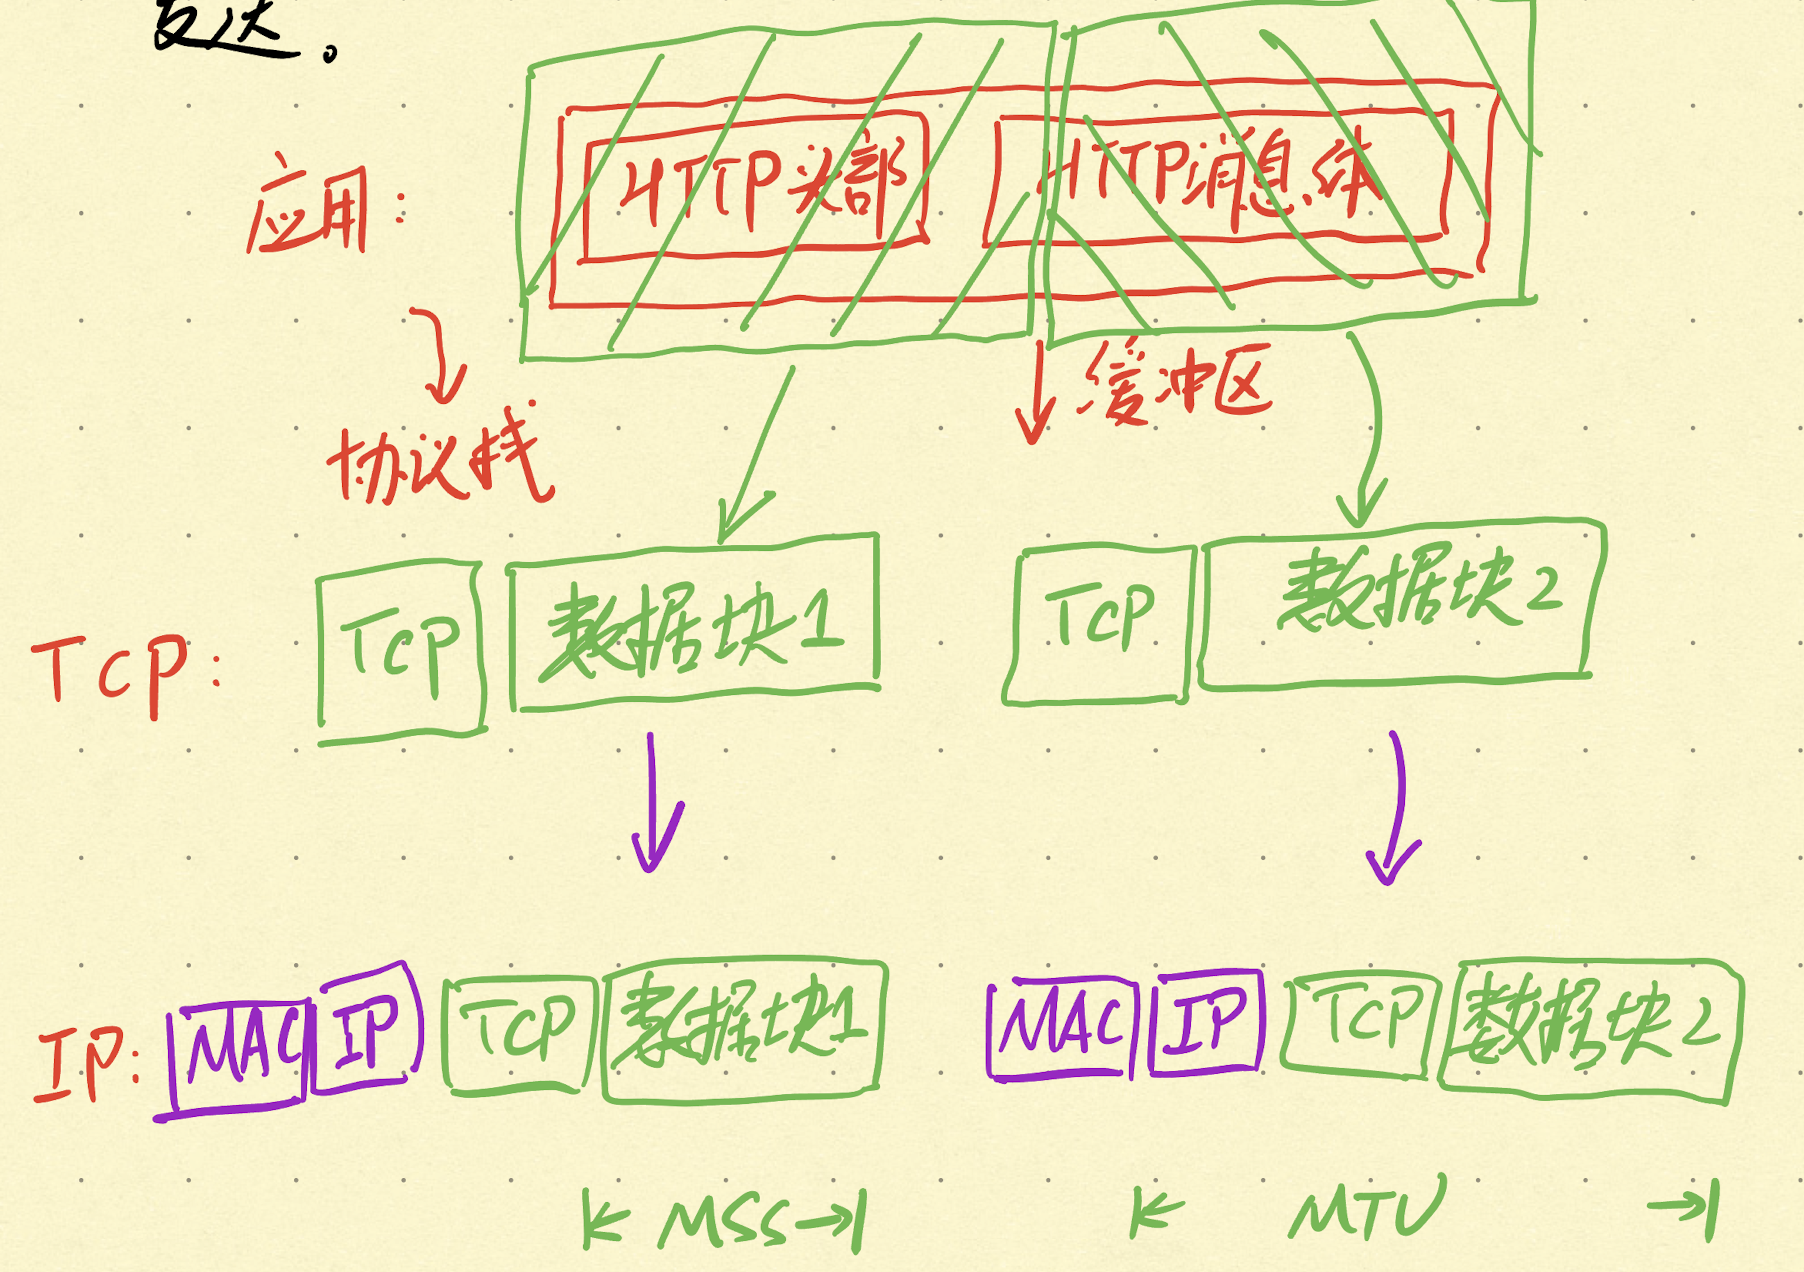 发送。
应用: HTTP头部 HTTP消息体
缓冲区
协议栈
TCP: TCP 数据块1 TCP 数据块2
IP: MAC IP TCP 数据块1 MAC IP TCP 数据块2
MSS MTU